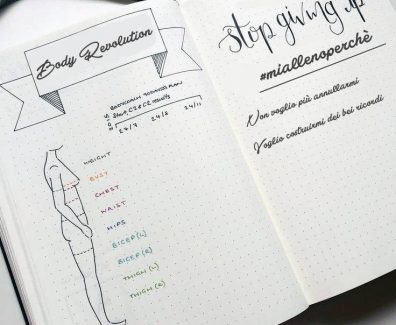 Body Revolution
BODYCOACH TONNING PLAN
Start, C2 & C2 results
27/7 24/8 24/11
WEIGHT
BUST
CHEST
WAIST
HIPS
BICEP (L)
BICEP (R)
THIGH (L)
THIGH (R)
stop giving up
#miallenoperchè
Non voglio più annullarmi
Voglio costruirmi dei bei ricordi